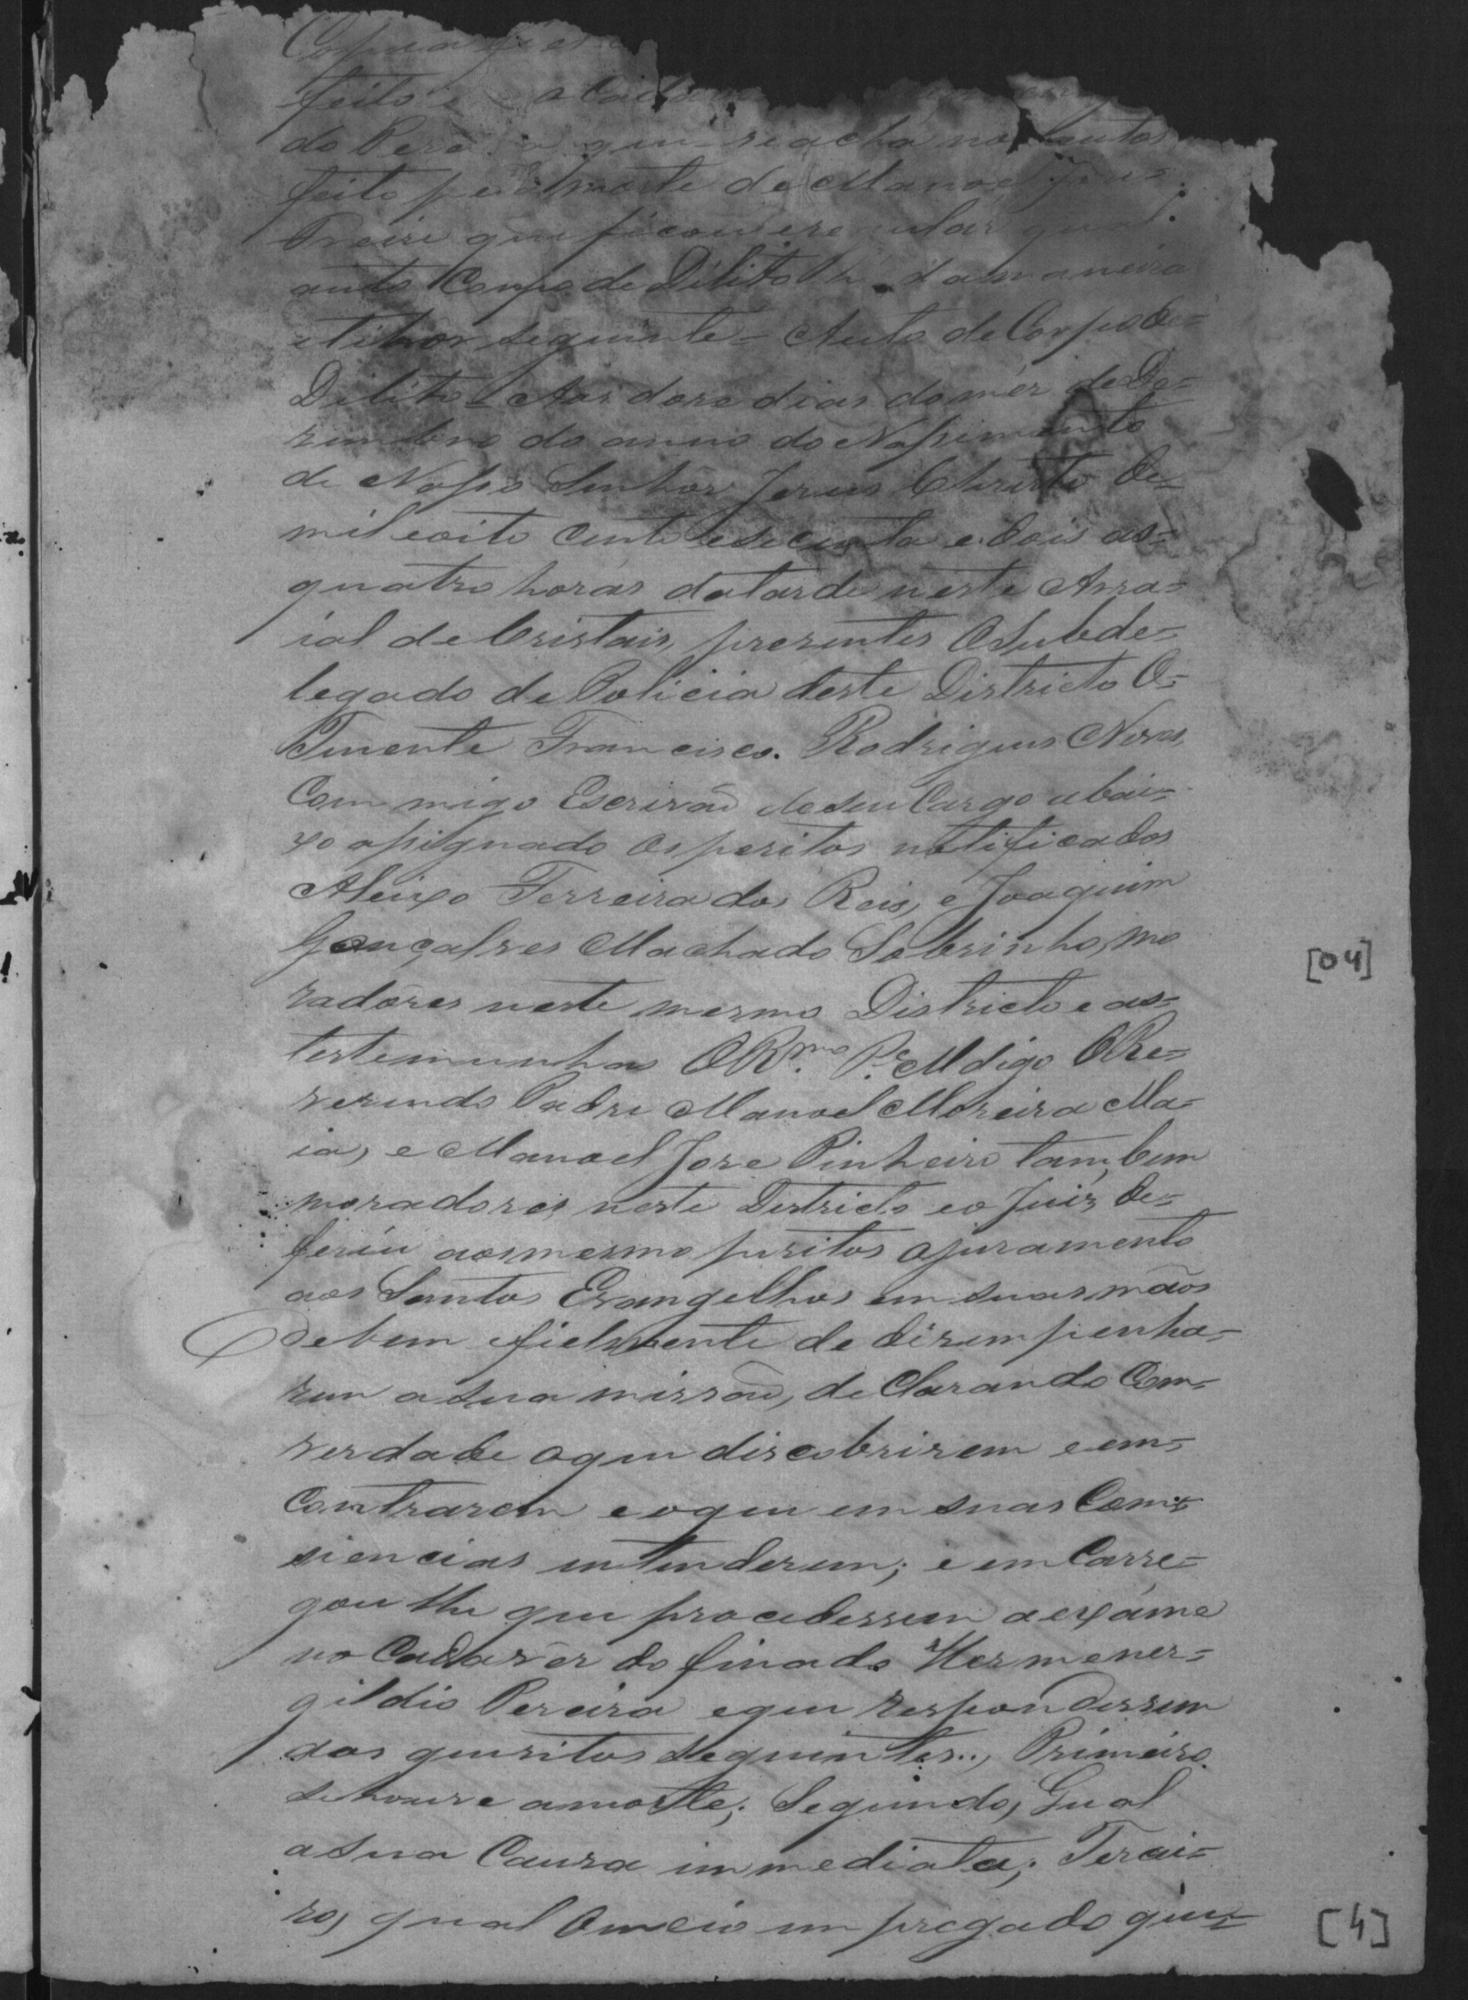 Copia
feito e
do que se acha nos autos
feito morte de Manoel
que ficou
auto Corpo de Dilito da maneira
e theor seguinte = Auto de Corpo de =
Dilito = Aos dose dias do mez de De =
zembro do anno do Nassimento
de Nosso Senhor Jezus Christo de =
mil e oito cento e secenta e dois as =
quatro horas da tarde neste Arra =
ial de Cristais, prezentes O Subde =
legado de Policia deste Districto O =
Tenente Francisco. Rodrigues Neves,
Com migo Escrivaõ de seu Cargo abai =
xo assignado os peritos notificados
Aleixo Ferreira dos Reis, e Joaquim
Gonçalves Machado Sobrinho, mo
radores neste mesmo Districto e as =
testemunhas O Rmo. Pe. M digo O Re =
verendo Padre Manoel Moreira Ma =
ia, e Manoel Joze Pinheiro tambem
moradores neste Destricto e o Juiz de =
feriu aos mesmo peritos o juramento
aos Santos Evangelhos em suas mãos
de bem e fielmente de dizempenha =
rem a sua missaõ, de Clarando Com =
verdade o que discobrirem e em =
Contrarem e o que em suas Com =
siencias intenderem; e em Carre =
gou lhe que procedessem a exáme
no Cadaver do finado Hermener =
gildio Pereira e que respondessem
aos quezitos seguintes.., Primeiro.
se houve a morte; Segundo, Qual
a sua Cauza immediata; Tercei =
ro, qual O meio em pregado que =
[04]
[4]